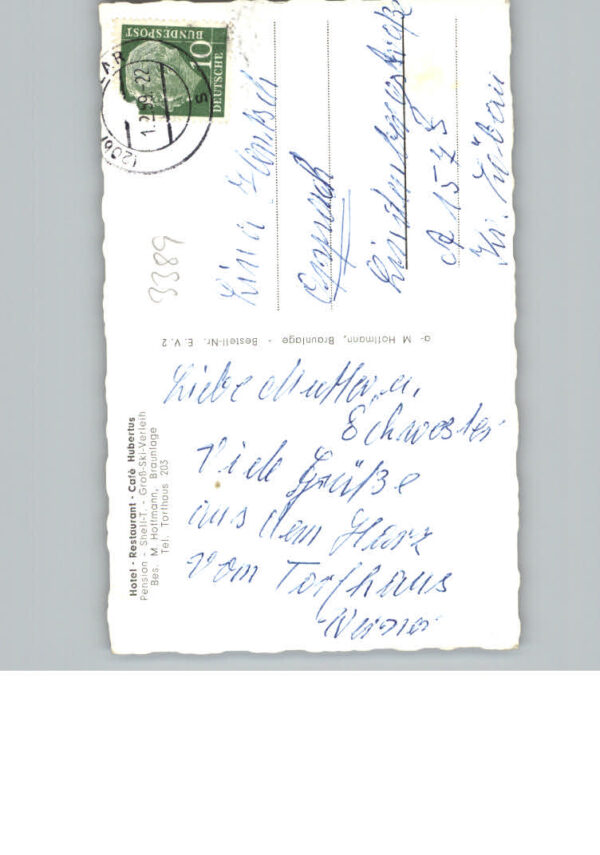 Hotel - Restaurant - Café Hubertus
Pension - Shell-T. - Groß-Ski-Verleih
Bes. M. Hoffmann, Braunlage
Tel. Torfhaus 203
Liebe Mutter u.
Schwester
Viele Grüße
aus dem Harz
vom Torfhaus
Werner
M Hoffmann, Braunlage - Bestell-Nr. E. V. 2
3389
DEUTSCHE
BUNDESPOST
10
1.2.59-22
(20b)
Lina
Lindenbergstraße
A 1575
Kr. Löbau